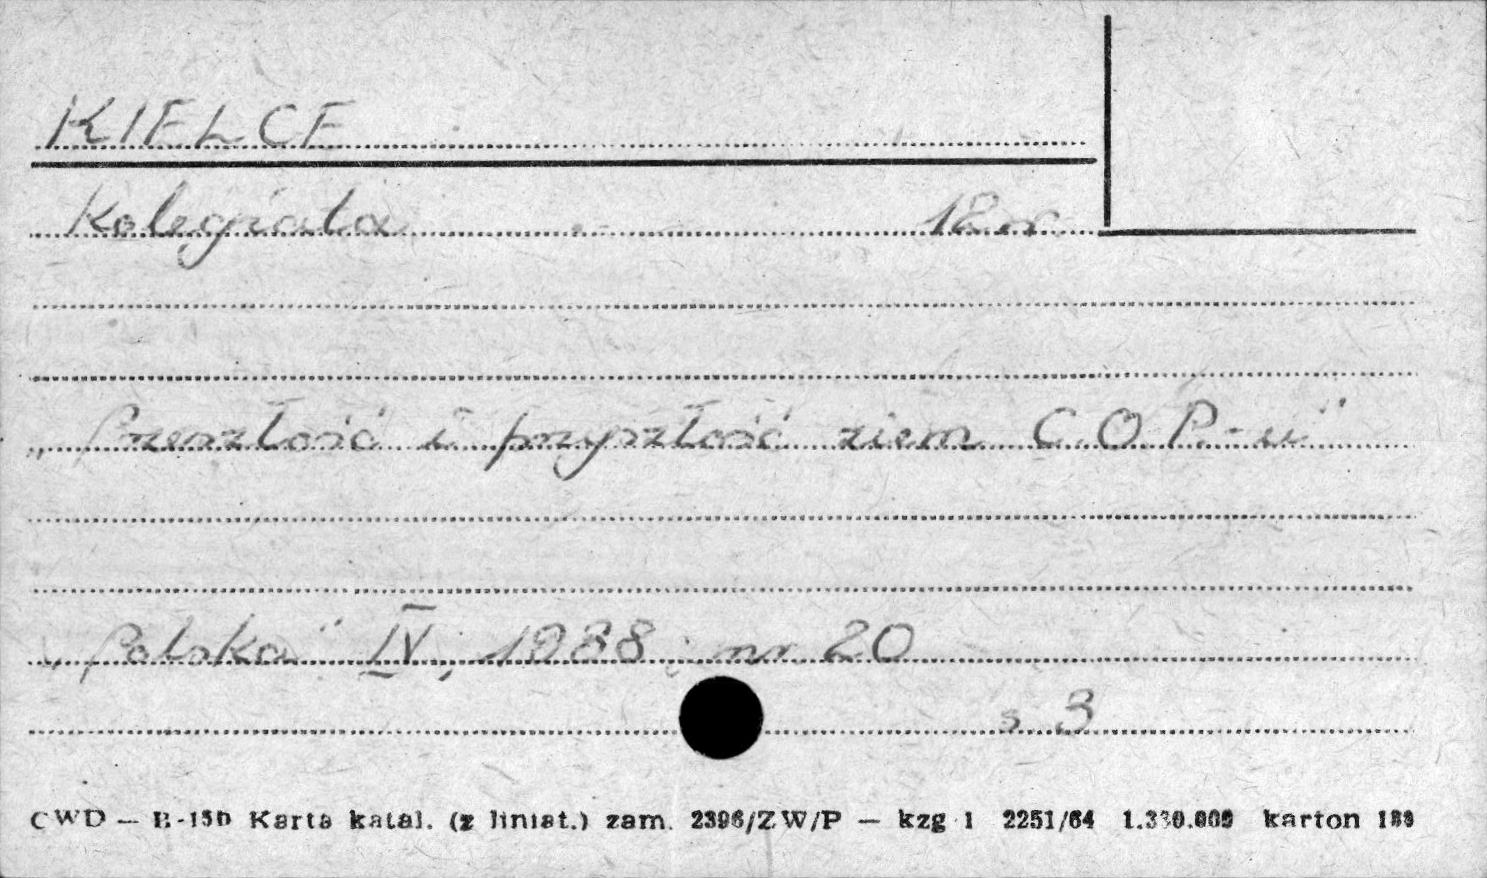 KIELCE
Kolegiata 12 w.
„Przeszłość i przyszłość ziem C.O.P.-u"
„Polska" IV, 1938, nr 20
s. 3
CWD — B-150 Karta katal. (z liniat.) zam. 2396/ZW/P — kzg 1 2251/64 1.330.000 karton